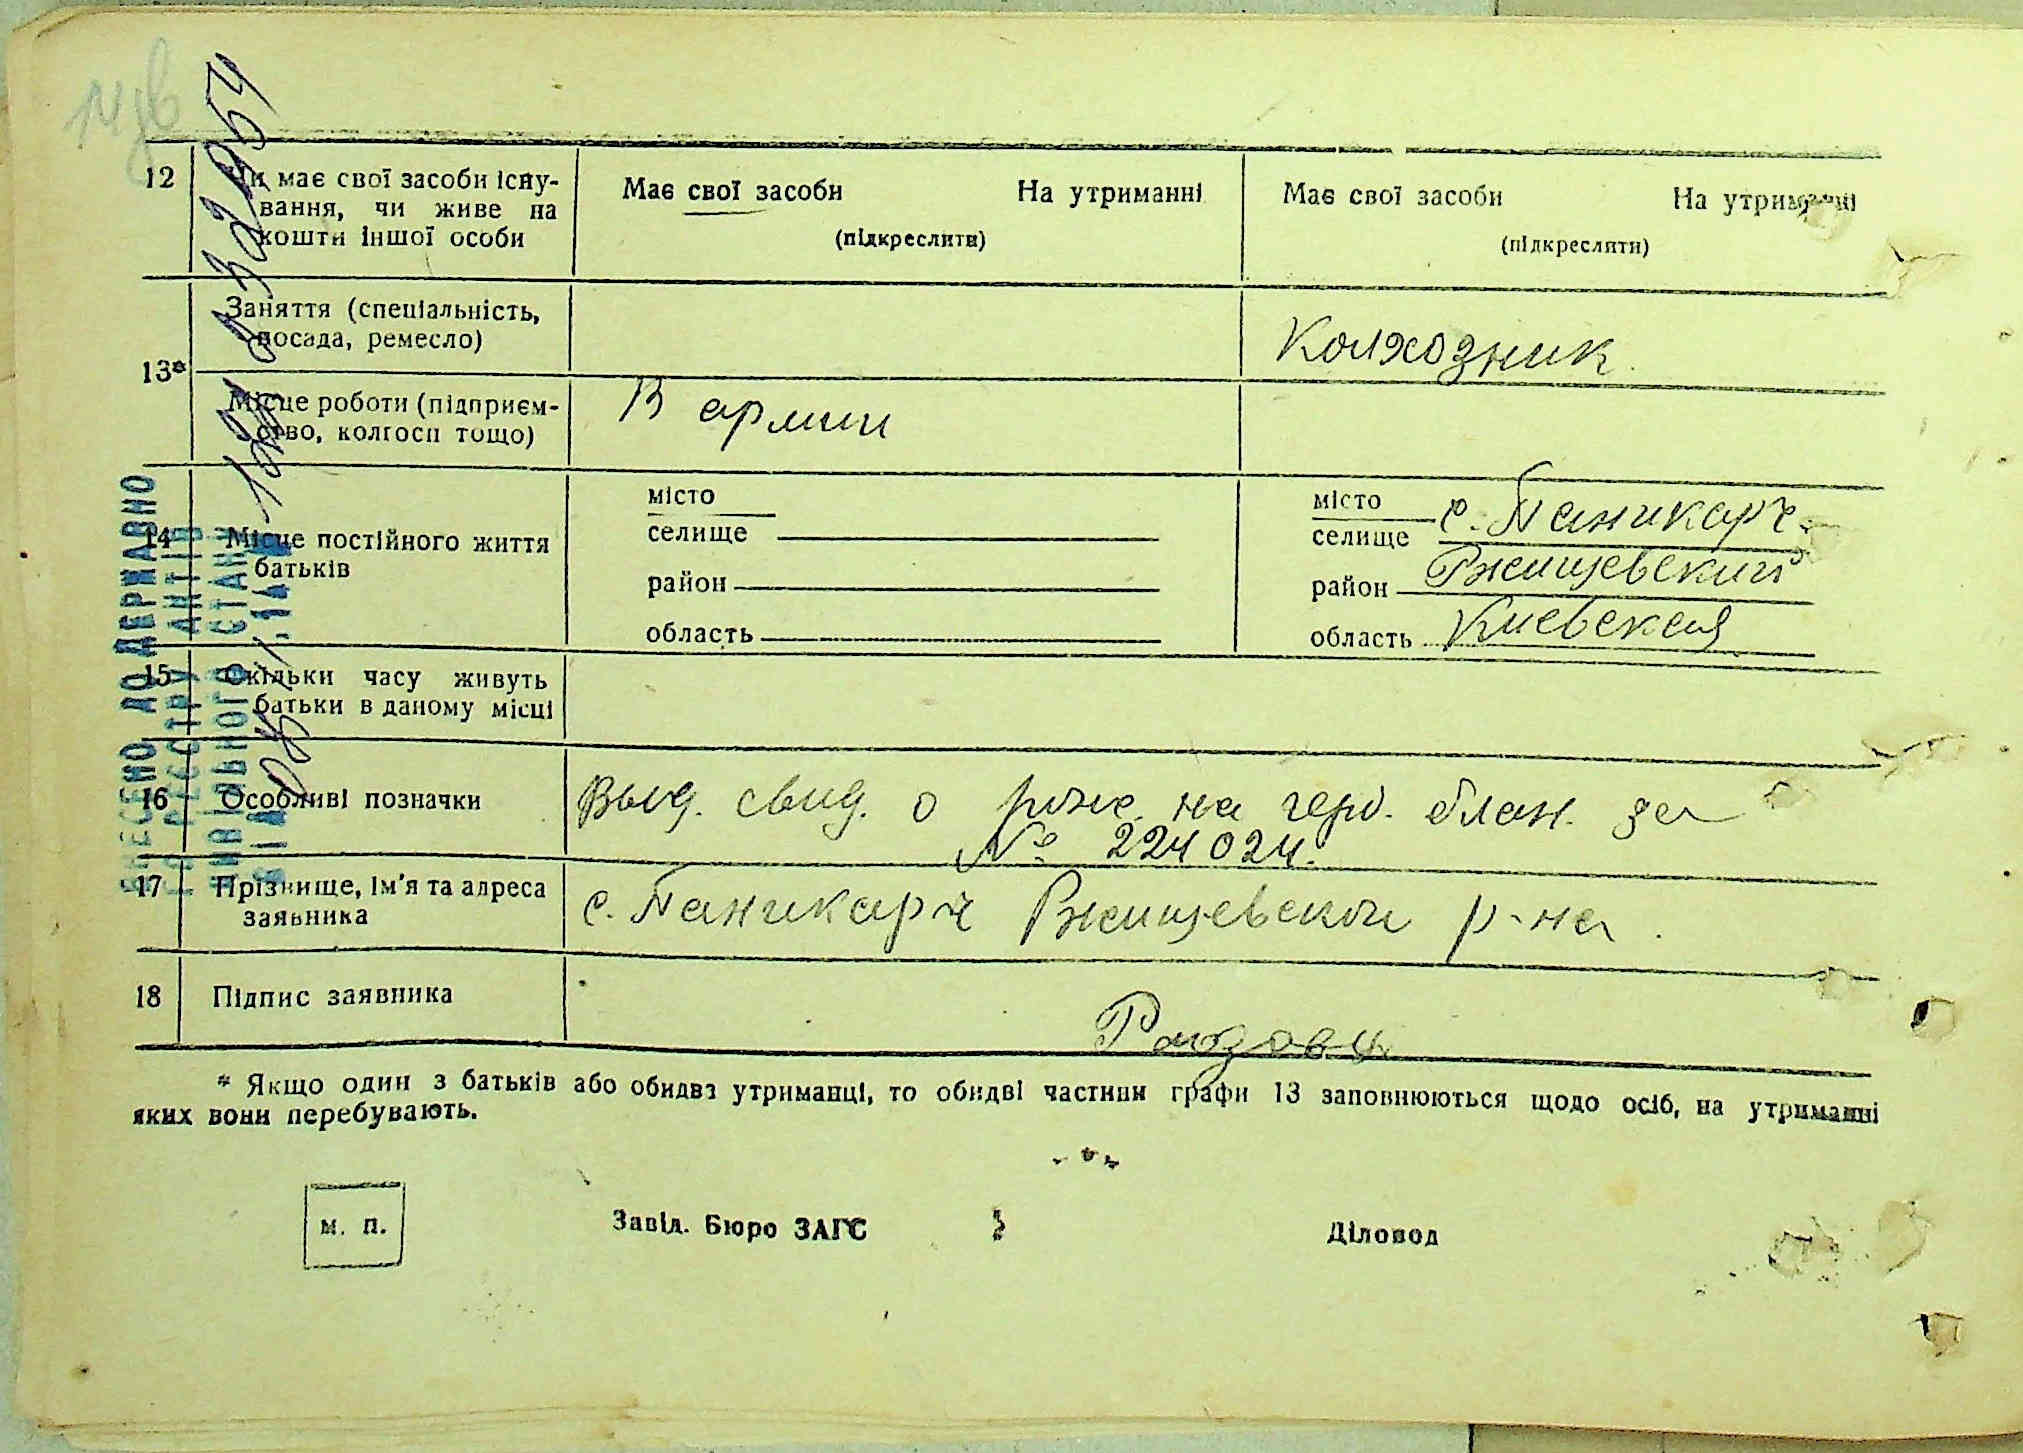 12
Чи має свої засоби існу-
вання, чи живе на
кошти іншої особи
Має свої засоби На утриманні
(підкреслити)
Має свої засоби На утриманні
(підкреслити)
13*
Заняття (спеціальність,
посада, ремесло)
Колхозник
Місце роботи (підприєм-
ство, колгосп тощо)
В армии
14
Місце постійного життя
батьків
місто
селище
район
область
місто
селище с. Паникарч
район Ржищевский
область Киевская
15
Скільки часу живуть
батьки в даному місці
16
Особливі позначки
Выд. свид. о рож. на герб. блан. за
№ 224024.
17
Прізвище, ім'я та адреса
заявника
с. Паникарч Ржищевской р-на.
18
Підпис заявника
* Якщо один з батьків або обидва утриманці, то обидві частини графи 13 заповнюються щодо осіб, на утриманні
яких вони перебувають.
м. п.
Завід. Бюро ЗАГС
Діловод
ВНЕСЕНО ДО ДЕРЖАВНО
ГО РЕЄСТРУ АКТІВ
ЦИВІЛЬНОГО СТАНУ